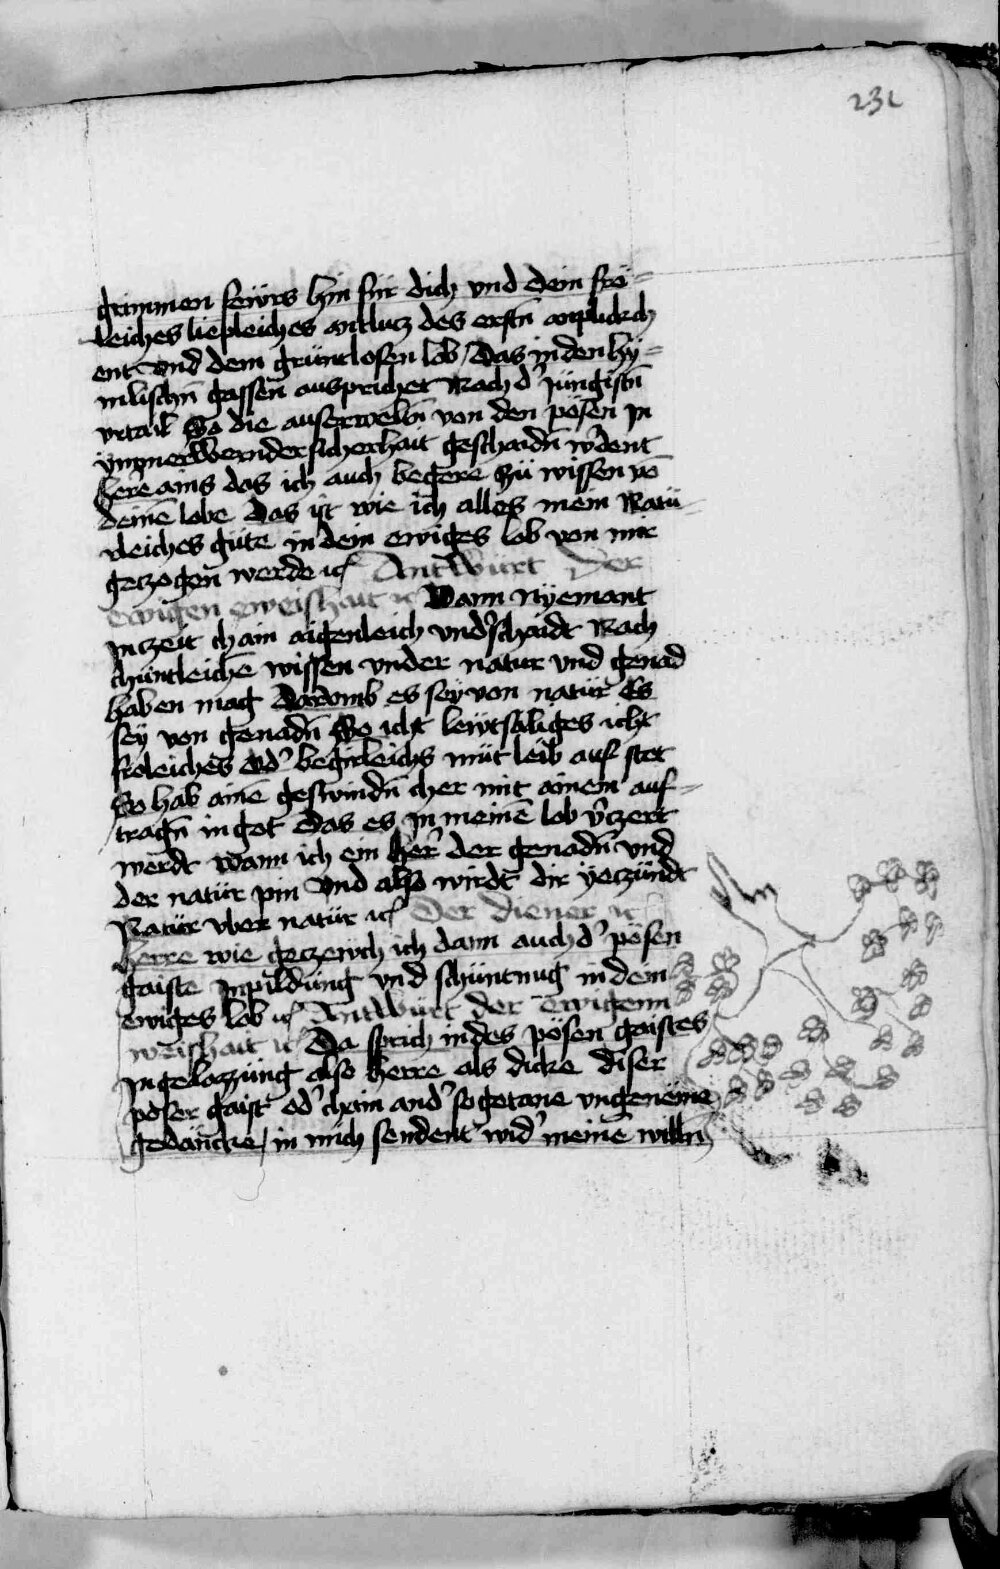 231
grimmen fewrs hin für dich vnd dein frö-
leiches liepleiches antlucz des erstn anplickch
ent vnd dem grüntlosen lob / Das in den hy-
mlischn gassen ausprichet Nach d' jüngistn
vrtail So die auserweltn von den pösen jn
ymmerwernder sicherhait geschaidn w'dent
here ains das ich auch begere zü wissen vō
deinē lobe Das ist wie ich alles mein Natü-
rleiches güte in dein ewiges lob von mir
geczogen werde ⁊c Antwürt Der
ewigen weishait ⁊c Wann Nyemant
jn zeit chain aigenleich vnd'schaidt Nach
chüntleichē wissen vnder natur vnd genad
haben mag Darvmb es sey von natür Es
sey von genadn So icht lewtsäliges icht
froleiches od' begirleichs müt leib auf stet
So hab aine geswindn cher mit ainem auf-
tragn in got Das es jn meinē lob v'czert
werdt wann ich ein her' der genadn vnd
der natür pin vnd also wirdt dir yeczündt
Natür vber natür ⁊c Der diener ⁊c
Herre wie geczewch ich dann auch d' pösen
gaiste jnpildüng vnd schüntnug in dein
ewiges lob ⁊c Antwürt der ewigenn
weishait ⁊c Da sprich in des pösen gaistes
jngelazzüng also herre als dicke diser
pöser gaist od' chain and' sogetane vngenëme
gedäncke / in mich sendent wid' meinē willn